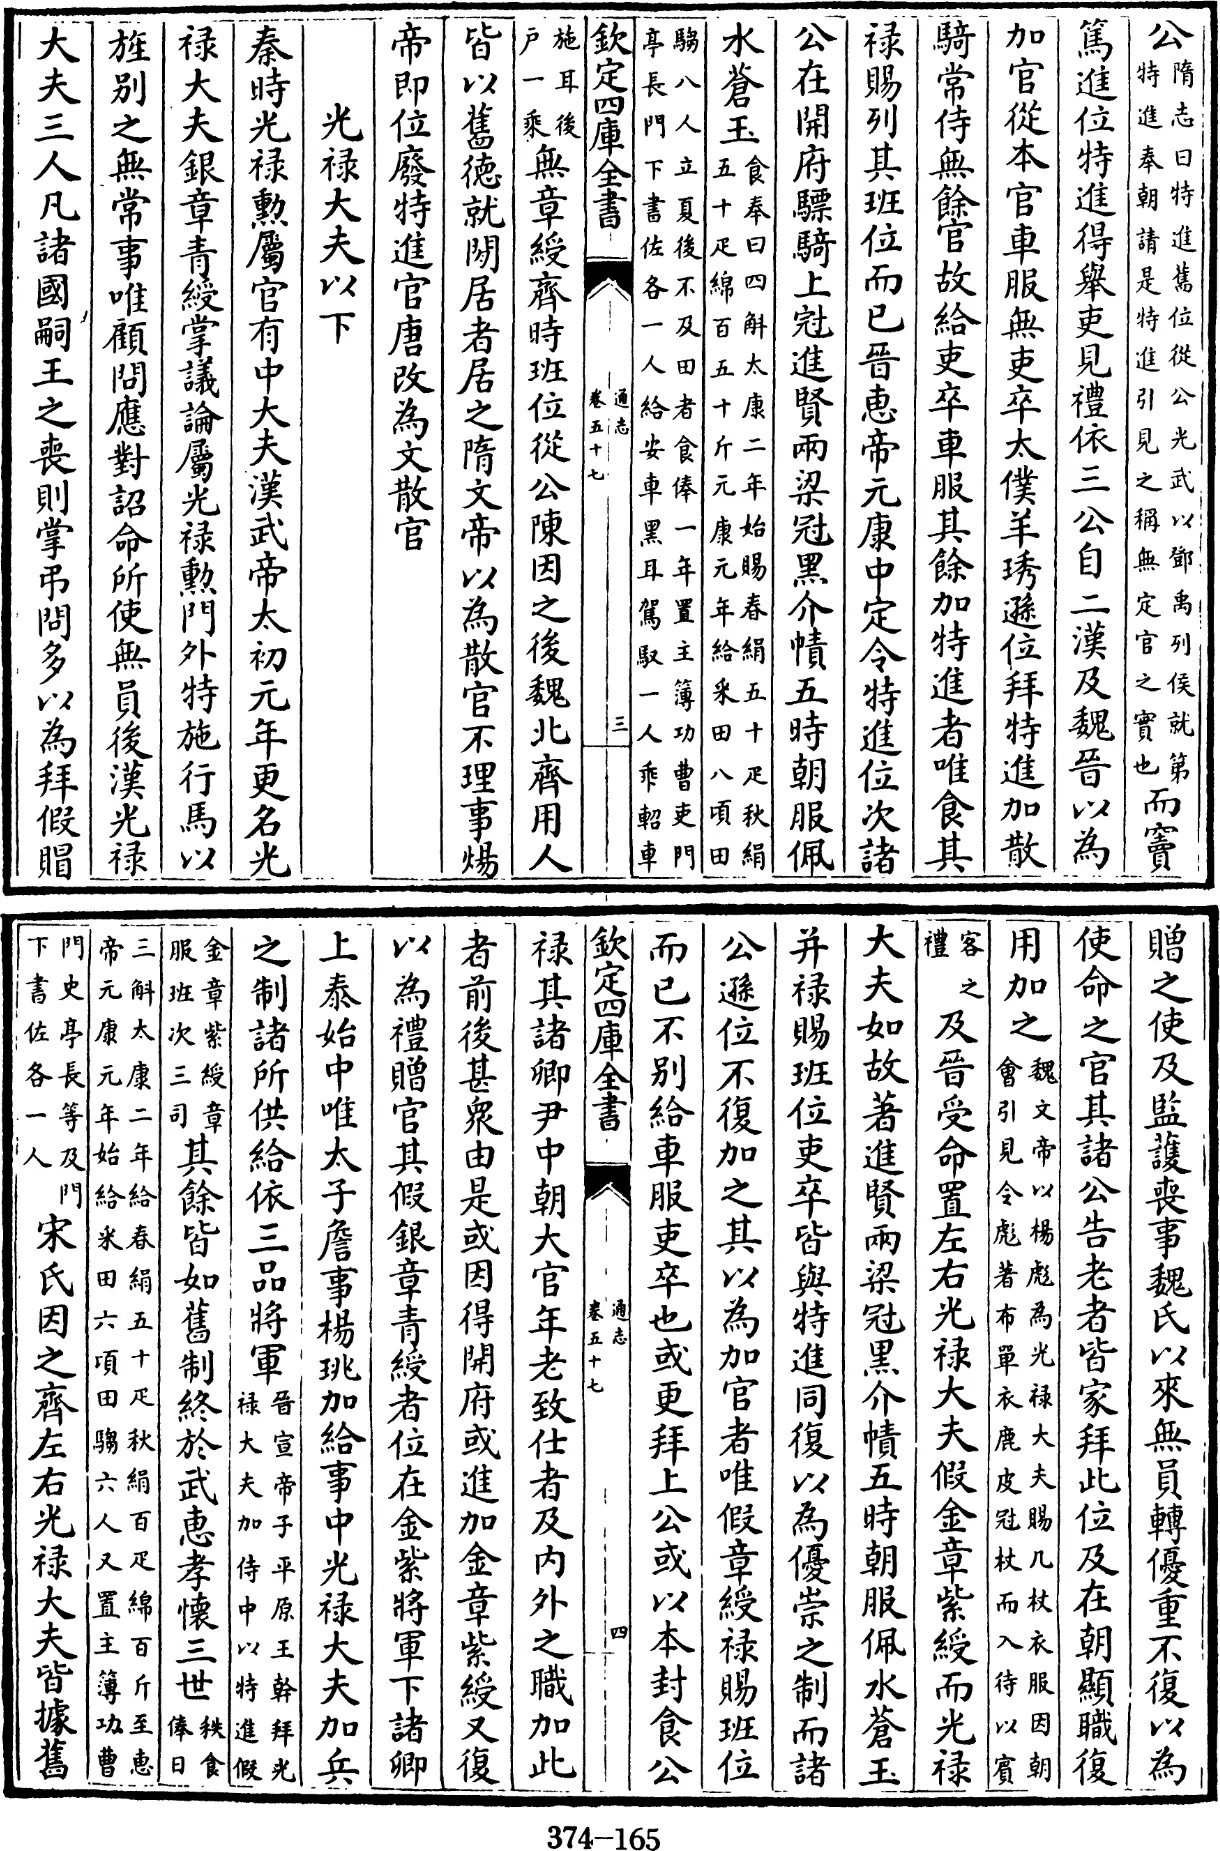 公隋志曰特進舊位從公光武以鄧禹列侯就第特進奉朝請是特進引見之稱無定官之實也而竇
篤進位特進得舉吏見禮依三公自二漢及魏晉以為
加官從本官車服無吏卒太僕羊琇遜位拜特進加散
騎常侍無餘官故給吏卒車服其餘加特進者唯食其
祿賜列其班位而已晉惠帝元康中定令特進位次諸
公在開府驃騎上冠進賢兩梁冠黑介幘五時朝服佩
水蒼玉食奉日四斛太康二年始賜春絹五十疋秋絹五十疋綿百五十斤元康元年給釆田八頃田
騶八人立夏後不及田者食俸一年置主簿功曹吏門亭長門下書佐各一人給安車黑耳駕馭一人乘軺車
欽定四庫全書
通志
卷五十七
三
施耳後戶一乘無章綬齊時班位從公陳因之後魏北齊用人
皆以舊德就閒居者居之隋文帝以為散官不理事煬
帝即位廢特進官唐改為文散官
光祿大夫以下
秦時光祿勲屬官有中大夫漢武帝太初元年更名光
祿大夫銀章青綬掌議論屬光祿勲門外特施行馬以
旌別之無常事唯顧問應對詔命所使無員後漢光祿
大夫三人凡諸國嗣王之喪則掌弔問多以為拜假賵
贈之使及監護喪事魏氏以來無員轉優重不復以為
使命之官其諸公告老者皆家拜此位及在朝顯職復
用加之魏文帝以楊彪為光祿大夫賜几杖衣服因朝會引見令彪著布單衣鹿皮冠杖而入待以賓
客之禮及晉受命置左右光祿大夫假金章紫綬而光祿
大夫如故著進賢兩梁冠黑介幘五時朝服佩水蒼玉
并祿賜班位吏卒皆與特進同復以為優崇之制而諸
公遜位不復加之其以為加官者唯假章綬祿賜班位
而已不別給車服吏卒也或更拜上公或以本封食公
欽定四庫全書
通志
卷五十七
四
祿其諸卿尹中朝大官年老致仕者及內外之職加此
者前後甚衆由是或因得開府或進加金章紫綬又復
以為禮贈官其假銀章青綬者位在金紫將軍下諸卿
上泰始中唯太子詹事楊珧加給事中光祿大夫加兵
之制諸所供給依三品將軍晉宣帝子平原王幹拜光祿大夫加侍中以特進假
金章紫綬章服班次三司其餘皆如舊制終於武惠孝懷三世秩食俸日
三斛太康二年給春絹五十疋秋絹百疋綿百斤至惠帝元康元年始給釆田六頃田騶六人又置主簿功曹
門史亭長等及門下書佐各一人宋氏因之齊左右光祿大夫皆據舊
374-165